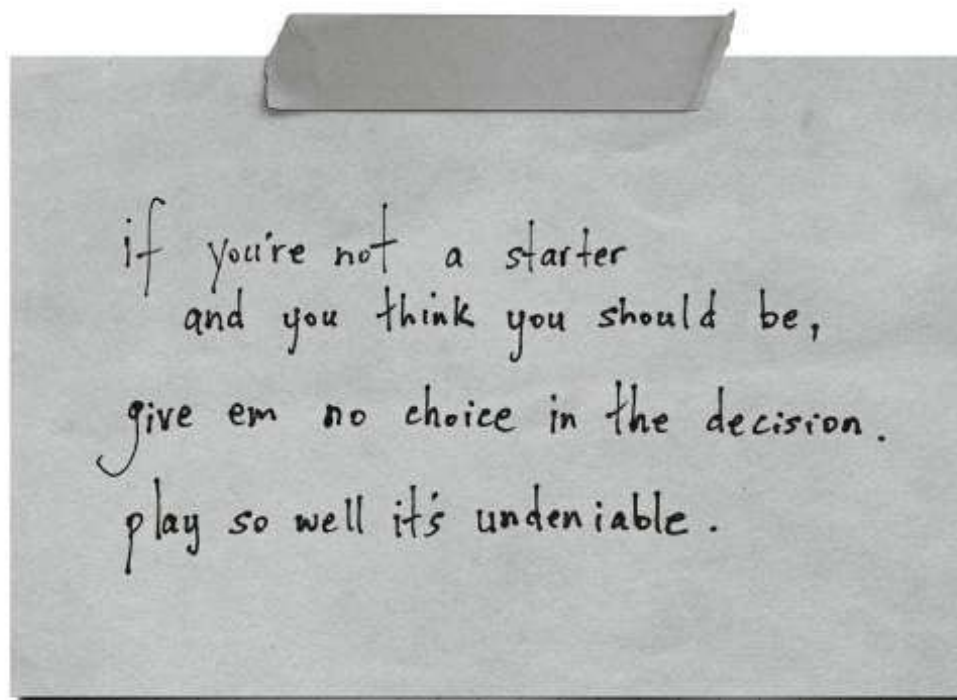 if you're not a starter
and you think you should be,
give em no choice in the decision.
play so well it's undeniable.